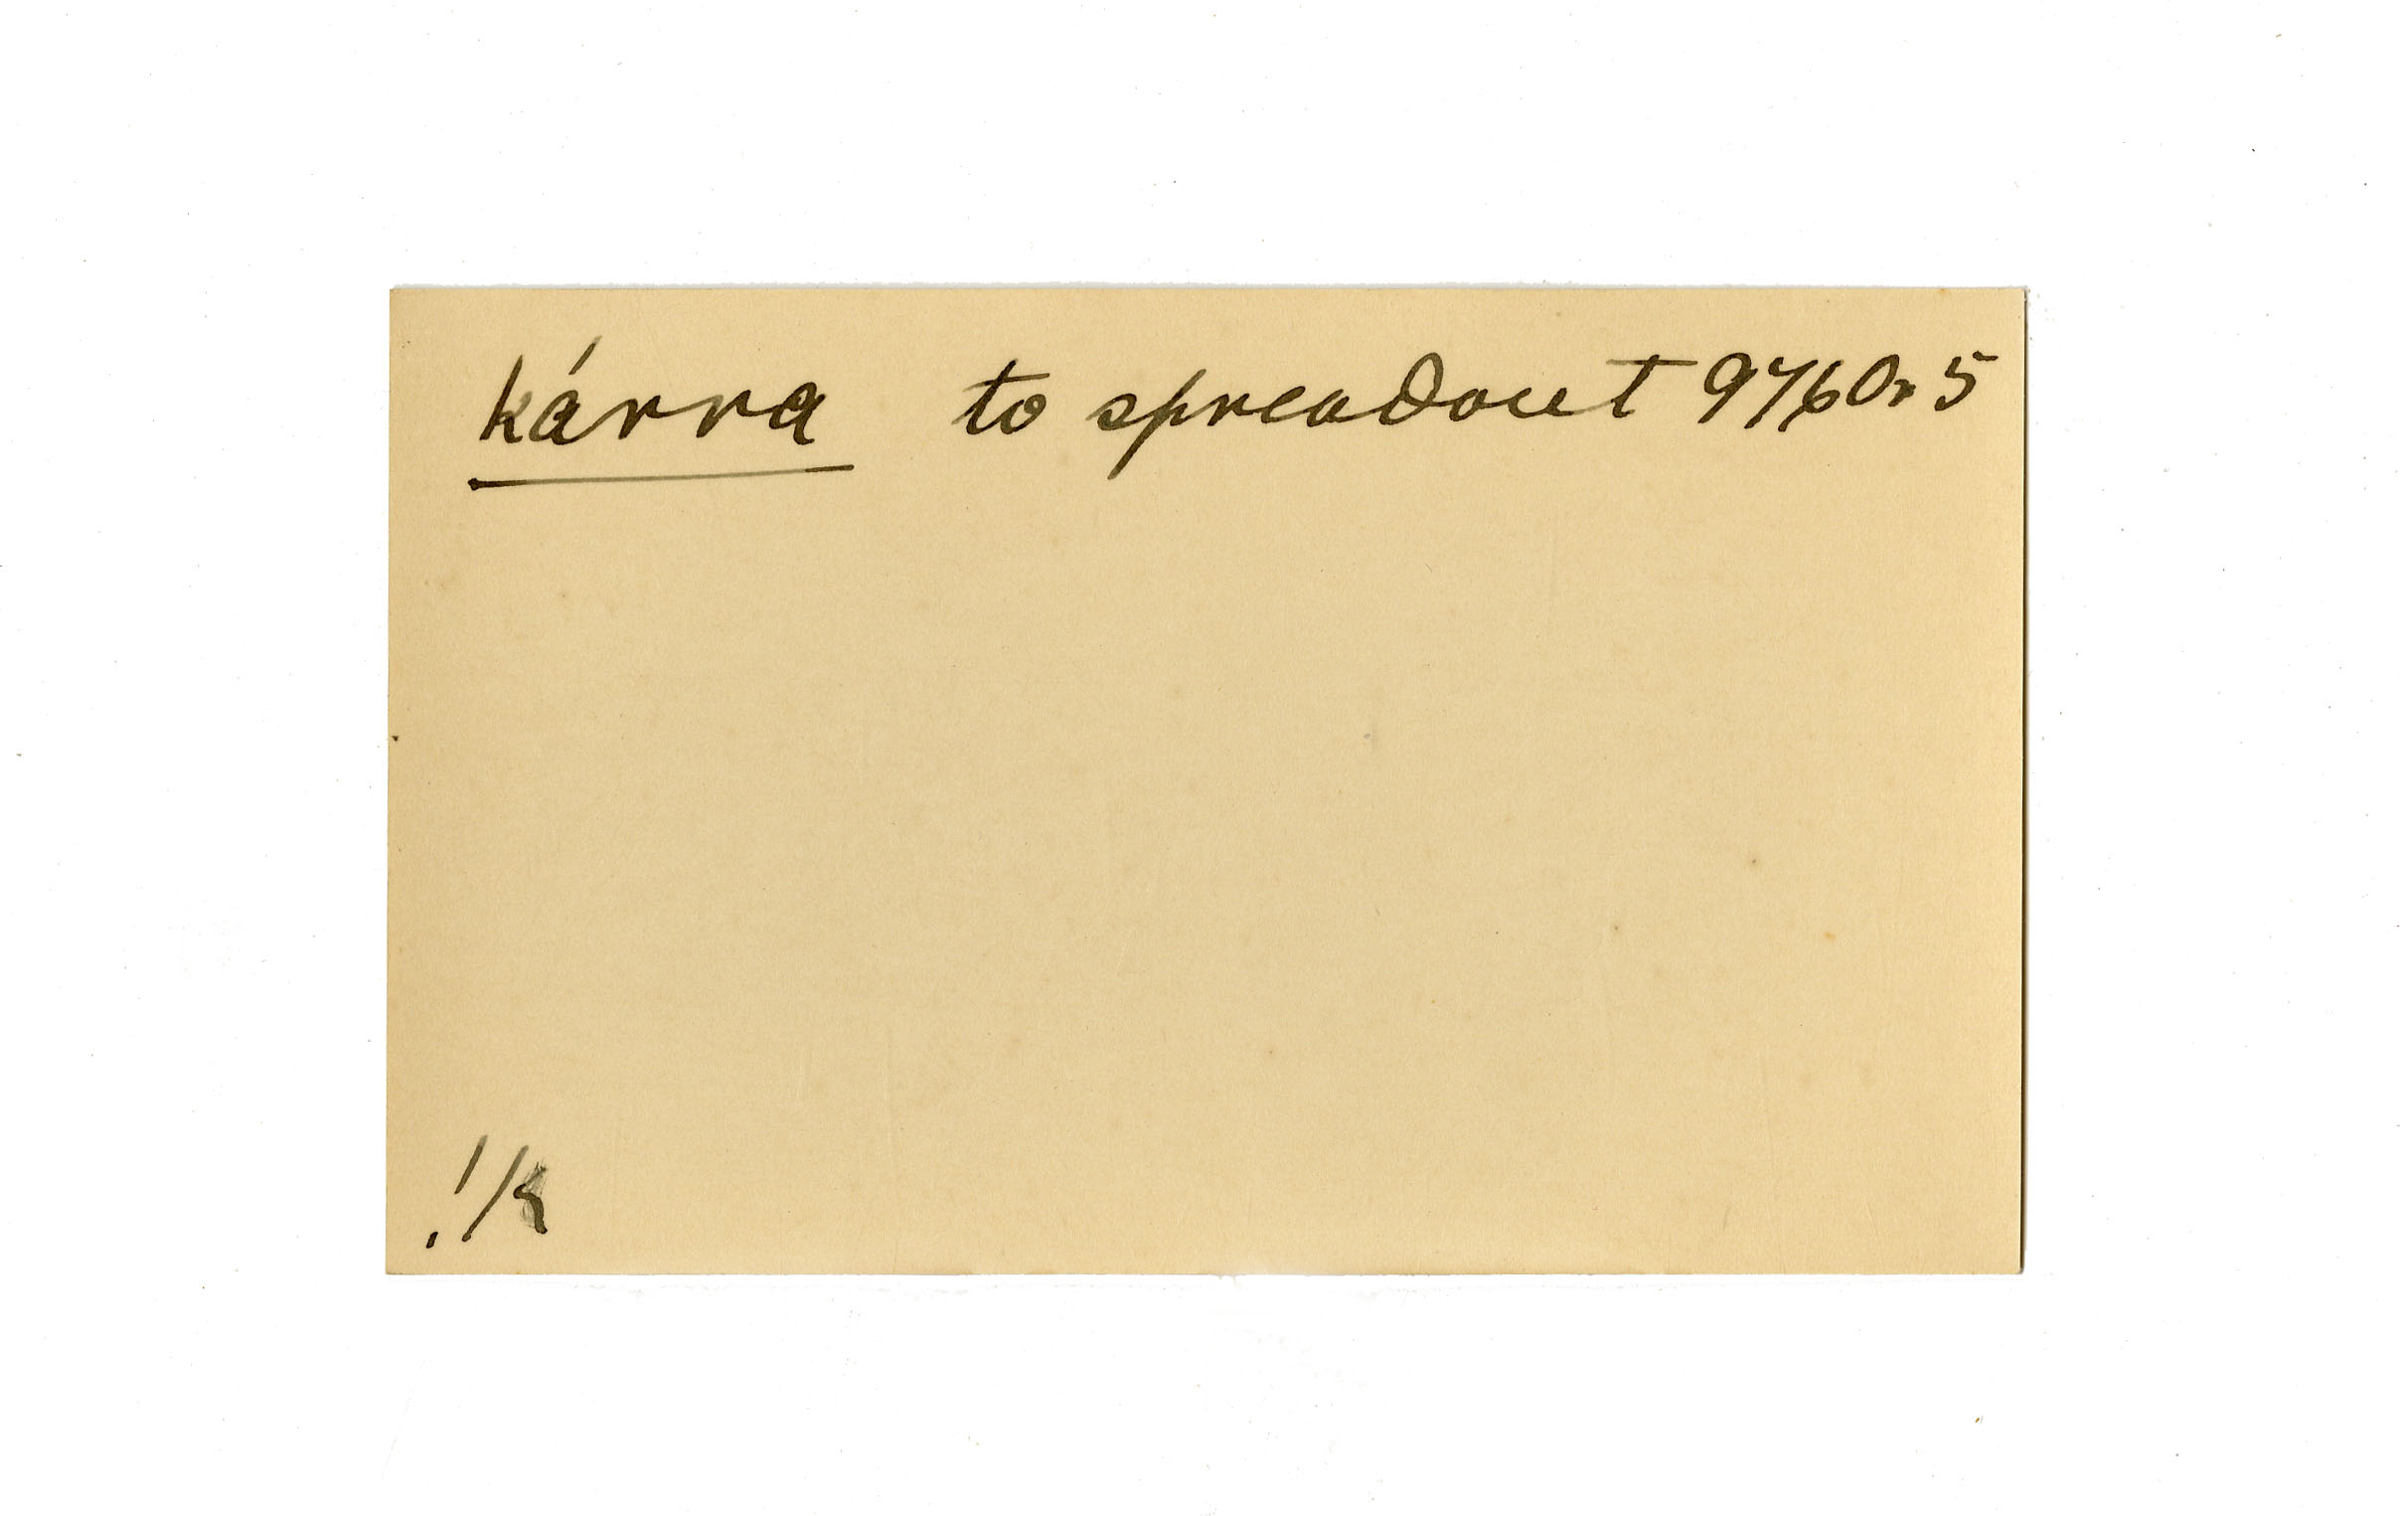 kárra to spreadout 9760. 5
!/k